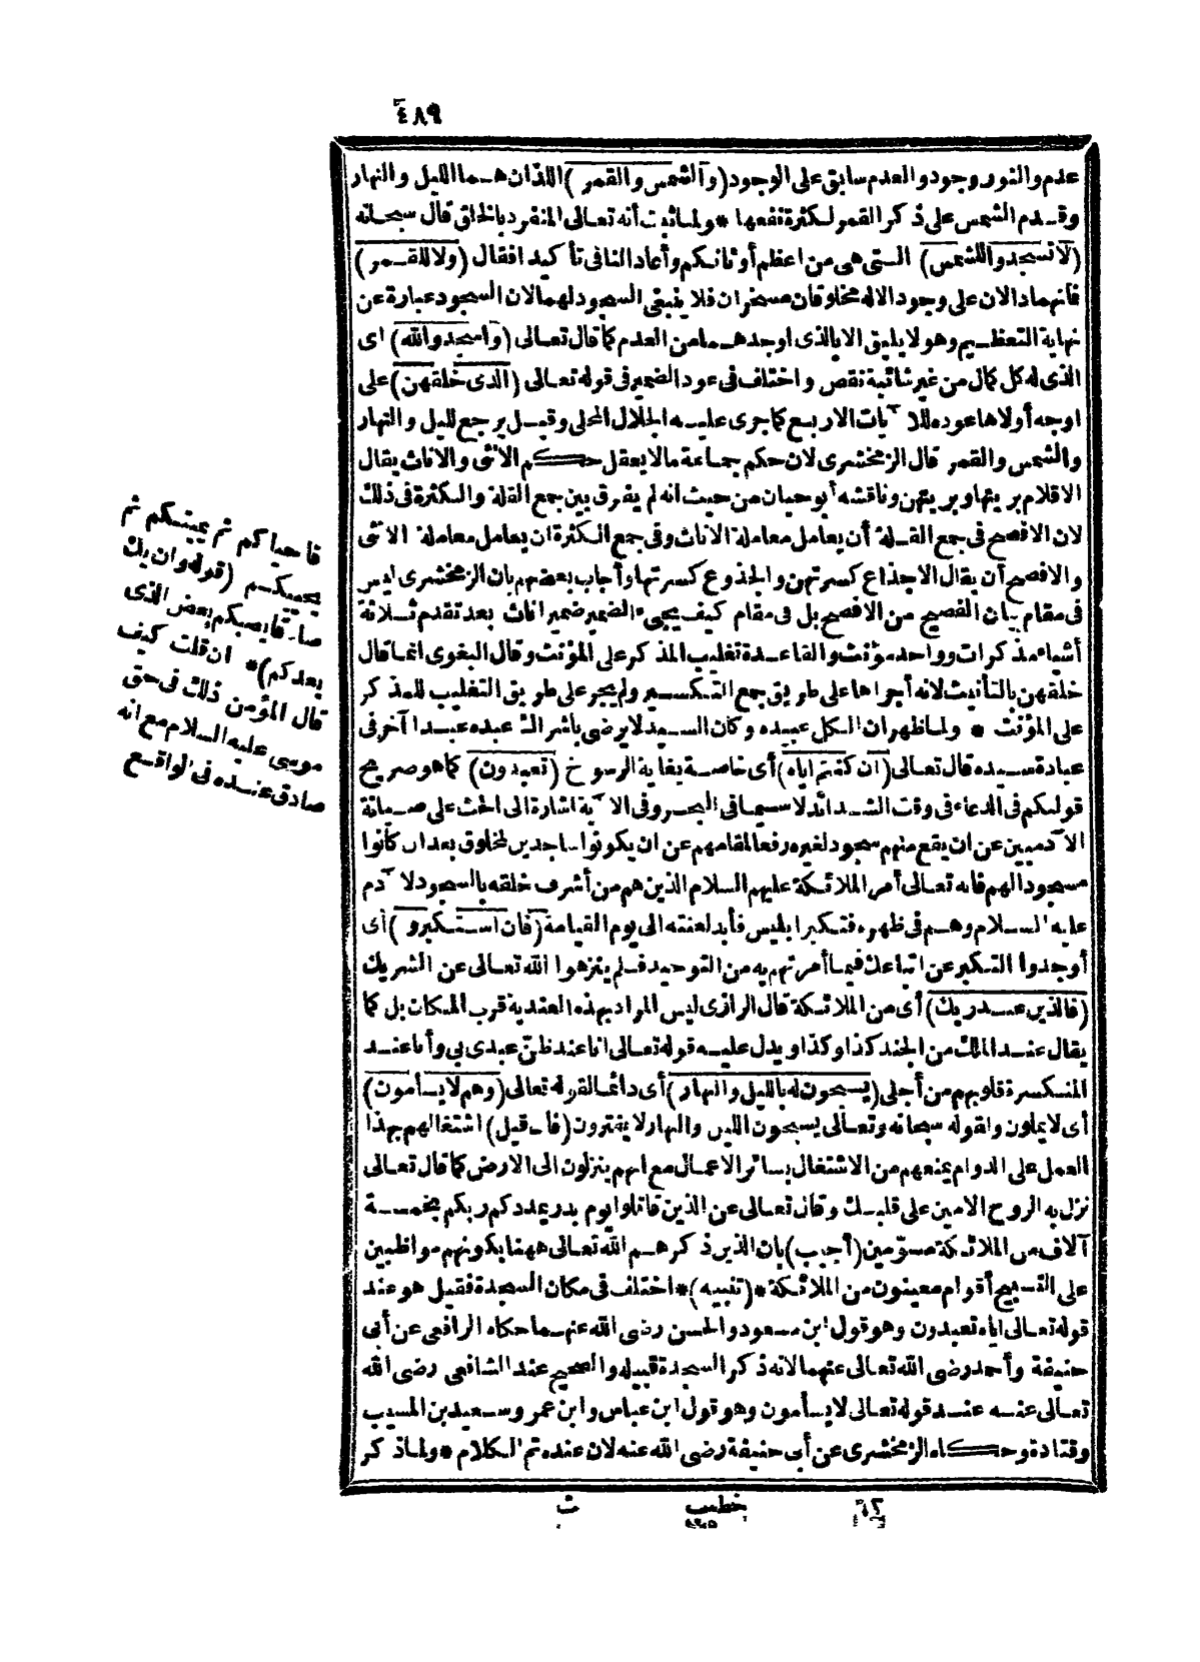 ٤٨٩
عدم والنور وجود والعدم سابق على الوجود (والشمس والقمر) اللذان هما الليل والنهار
وقدم الشمس على ذكر القمر لكثرة نفعها * ولما ثبت أنه تعالى المنفرد بالخلق قال سبحانه
(لا تسجدوا للشمس) التى هى من اعظم أوثانكم وأعاد النافى تأكيدا فقال (ولا للقمر)
فانهما دالان على وجود الاله مخلوقان مسخران فلا ينبغى السجود لهما لان السجود عبارة عن
نهاية التعظيم وهو لا يليق الا بالذى اوجدهما من العدم كما قال تعالى (واسجدوا لله) اى
الذى له كل كمال من غير شائبة نقص واختلف فى عود الضمير فى قوله تعالى (الذى خلقهن) على
اوجه أولاها عوده للآيات الاربع كما جرى عليه الجلال المحلى وقيل يرجع لليل والنهار
والشمس والقمر قال الزمخشرى لان حكم جماعة ما لا يعقل حكم الانثى والاناث يقال
الاقلام بريتها وبريتهن وناقشه أبوحيان من حيث انه لم يفرق بين جمع القلة والكثرة فى ذلك
لان الافصح فى جمع القلة أن يعامل معاملة الاناث وفى جمع الكثرة ان يعامل معاملة الانثى
والافصح أن يقال الاجذاع كسرتهن والجذوع كسرتها وأجاب بعضهم بان الزمخشرى ليس
فى مقام بيان الفصيح من الافصح بل فى مقام كيف يجىء الضمير ضمير اناث بعد تقدم ثلاثة
أشياء مذكرات وواحد مؤنث والقاعدة تغليب المذكر على المؤنث وقال البغوى انما قال
خلقهن بالتأنيث لانه أجراها على طريق جمع التكسير ولم يجر على طريق التغليب للمذكر
على المؤنث * ولما ظهر ان الكل عبيده وكان السيد لا يرضى باشراك عبده عبدا آخر فى
عبادة سيده قال تعالى (ان كنتم اياه) أى خاصة بغاية الرسوخ (تعبدون) كما هو صريح
قولكم فى الدعاء فى وقت الشدائد لا سيما فى البحر وفى الآية اشارة الى الحث على صيانة
الآدميين عن ان يقع منهم سجود لغيره رفعا لمقامهم عن ان يكونوا ساجدين لمخلوق بعد ان كانوا
مسجودا لهم فانه تعالى أمر الملائكة عليهم السلام الذين هم من أشرف خلقه بالسجود لآدم
عليه السلام وهم فى ظهره فتكبر ابليس فأبد لعنته الى يوم القيامة (فان استكبروا) أى
أوجدوا التكبر عن اتباعك فيما أمرتهم به من التوحيد فلم ينزهوا الله تعالى عن الشريك
(فالذين عند ربك) أى من الملائكة قال الرازى ليس المراد بهذه العندية قرب المكان بل كما
يقال عند الملك من الجند كذا وكذا ويدل عليه قوله تعالى انا عند ظن عبدى بى وأنا عند
المنكسرة قلوبهم من أجلى (يسبحون له بالليل والنهار) أى دائما لقوله تعالى (وهم لا يسأمون)
أى لا يملون ولقوله سبحانه وتعالى يسبحون الليل والنهار لا يفترون (فان قيل) اشتغالهم بهذا
العمل على الدوام يمنعهم من الاشتغال بسائر الاعمال مع انهم ينزلون الى الارض كما قال تعالى
نزل به الروح الامين على قلبك وقال تعالى عن الذين قاتلوا يوم بدر يمددكم ربكم بخمسة
آلاف من الملائكة مسوّمين (أجيب) بان الذين ذكرهم الله تعالى ههنا بكونهم مواظبين
على التسبيح أقوام معينون من الملائكة * (تنبيه) * اختلف فى مكان السجدة فقيل هو عند
قوله تعالى اياه تعبدون وهو قول ابن مسعود والحسن رضى الله عنهما حكاه الرافعى عن أبى
حنيفة وأحمد رضى الله تعالى عنهما لانه ذكر السجدة قبيله والصحيح عند الشافعى رضى الله
تعالى عنه عند قوله تعالى لا يسأمون وهو قول ابن عباس وابن عمر وسعيد بن المسيب
وقتادة وحكاه الزمخشرى عن أبى حنيفة رضى الله عنه لان عنده تم الكلام * ولما ذكر
فاحياكم ثم يميتكم ثم
يحييكم (قوله وان يك
صادقا يصبكم بعض الذى
يعدكم) * ان قلت كيف
قال المؤمن ذلك فى حق
موسى عليه السلام مع انه
صادق عنده فى الواقع
٦٢ خطيب ث